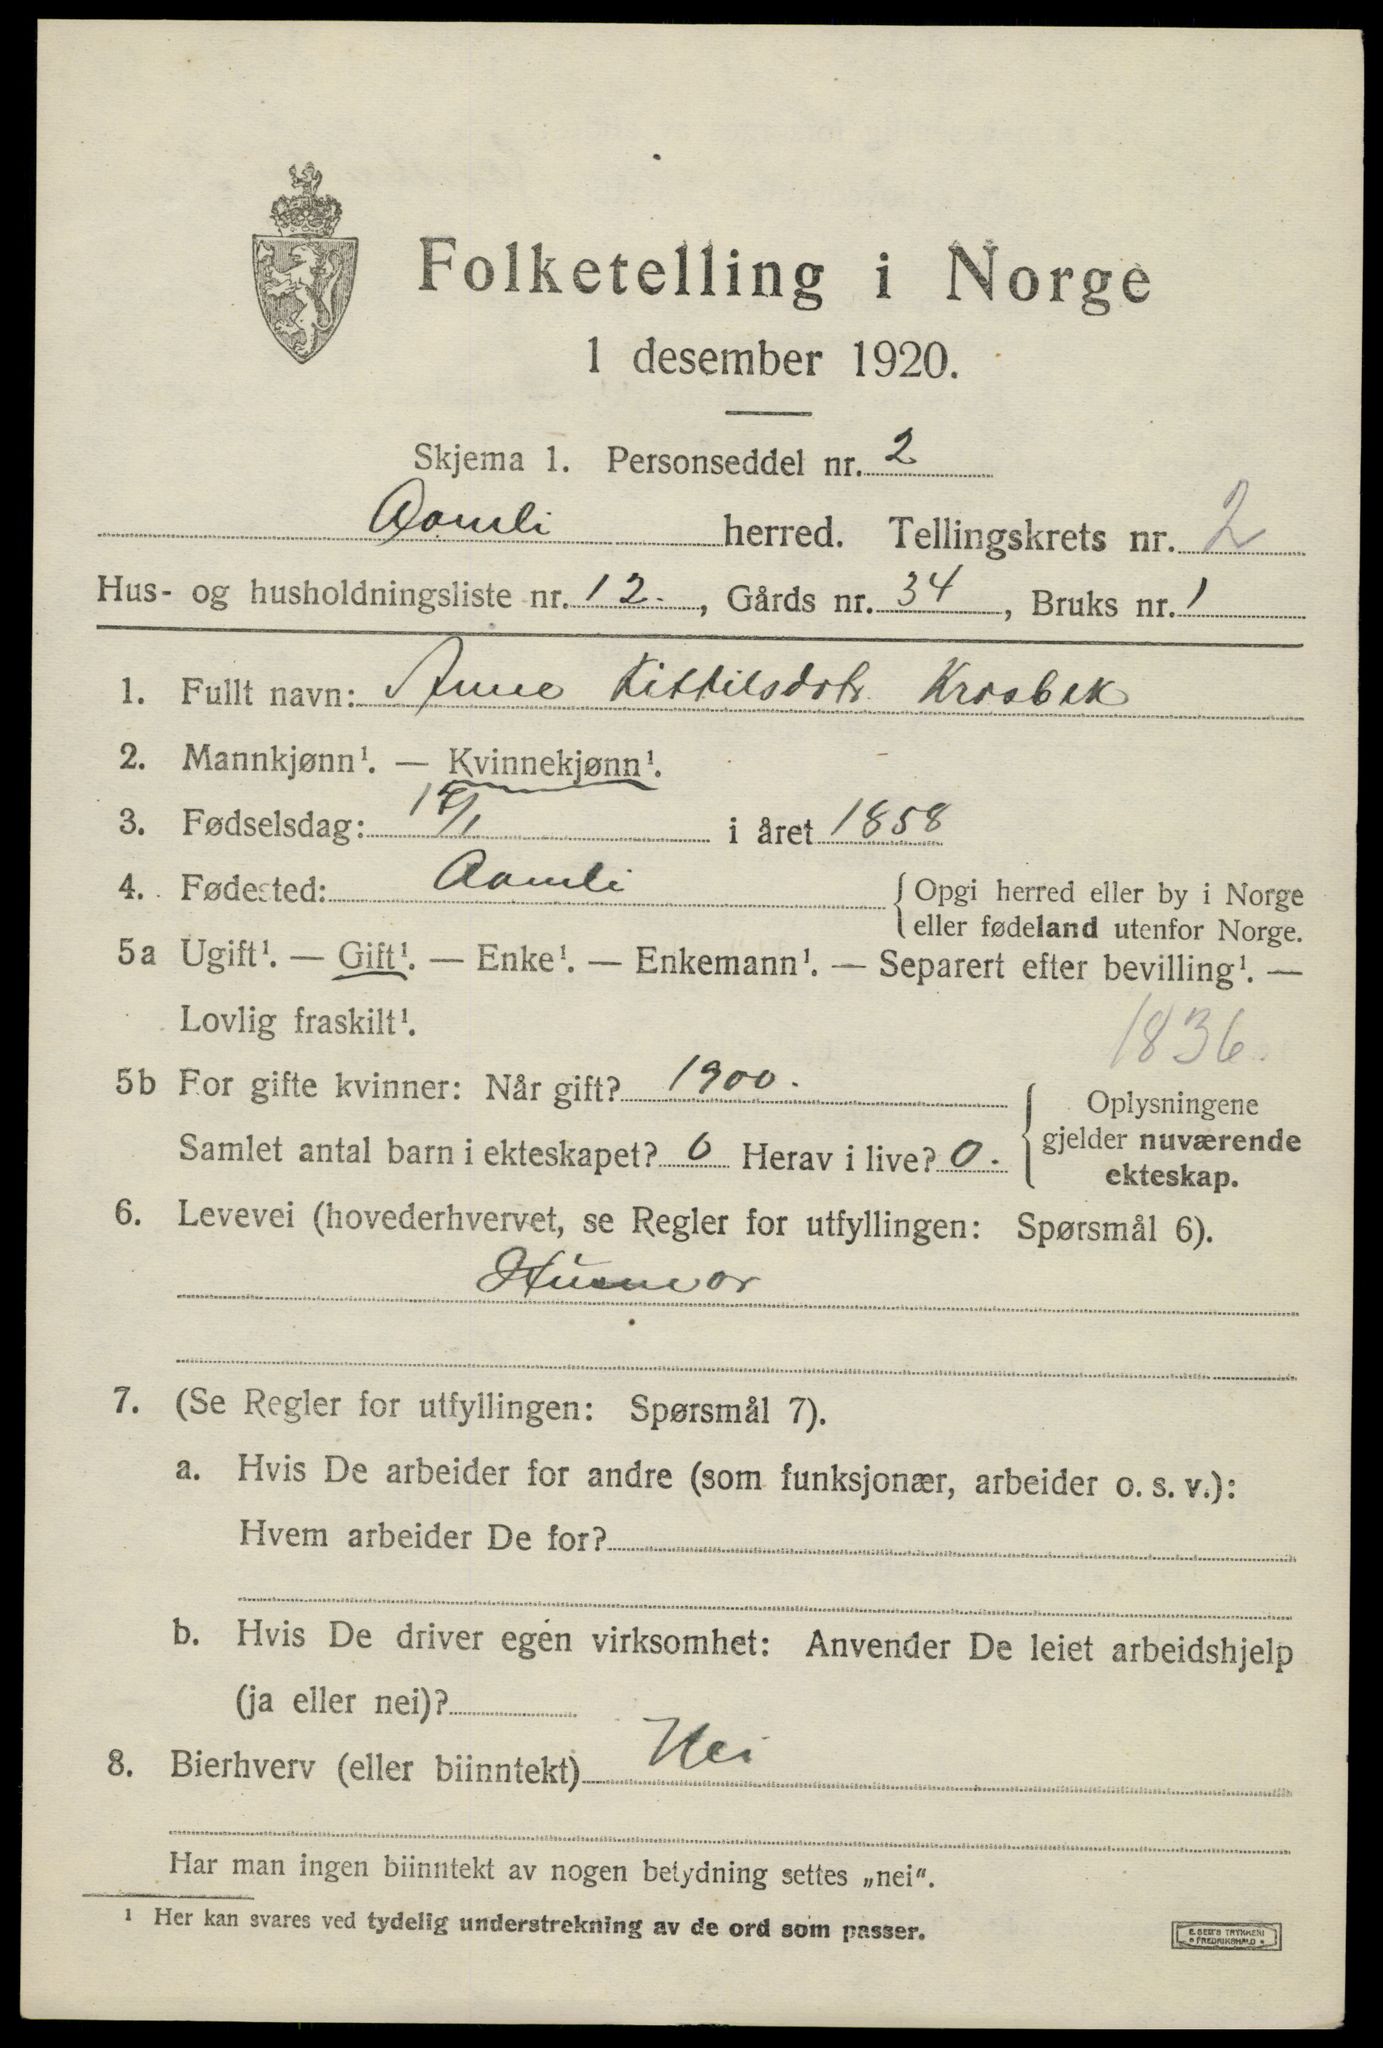 Folketelling i Norge
1 desember 1920.
Skjema 1. Personseddel nr. 2
Aamli herred. Tellingskrets nr. 2
Hus- og husholdningsliste nr. 12., Gårds nr. 34, Bruks nr. 1
1. Fullt navn: Anne Kittilsdotr. Krosbek
2. Mannkjønn¹. — Kvinnekjønn¹.
3. Fødselsdag: /1 i året 1858
4. Fødested: Aamli {Opgi herred eller by i Norge
eller fødeland utenfor Norge.
5a Ugift¹. — Gift¹. — Enke¹. — Enkemann¹. — Separert efter bevilling¹. —
Lovlig fraskilt¹.
1836.
5b For gifte kvinner: Når gift? 1900.
Samlet antal barn i ekteskapet? 0 Herav i live? 0.
Oplysningene
gjelder nuværende
ekteskap.
6. Levevei (hovederhvervet, se Regler for utfyllingen: Spørsmål 6).
Husmor
7. (Se Regler for utfyllingen: Spørsmål 7).
a. Hvis De arbeider for andre (som funksjonær, arbeider o. s. v.):
Hvem arbeider De for?
b. Hvis De driver egen virksomhet: Anvender De leiet arbeidshjelp
(ja eller nei)?
8. Bierhverv (eller biinntekt) Nei
Har man ingen biinntekt av nogen betydning settes „nei“.
¹ Her kan svares ved tydelig understrekning av de ord som passer.
E. SEM'S TRYKKERI
• FREDRIKSHALD •